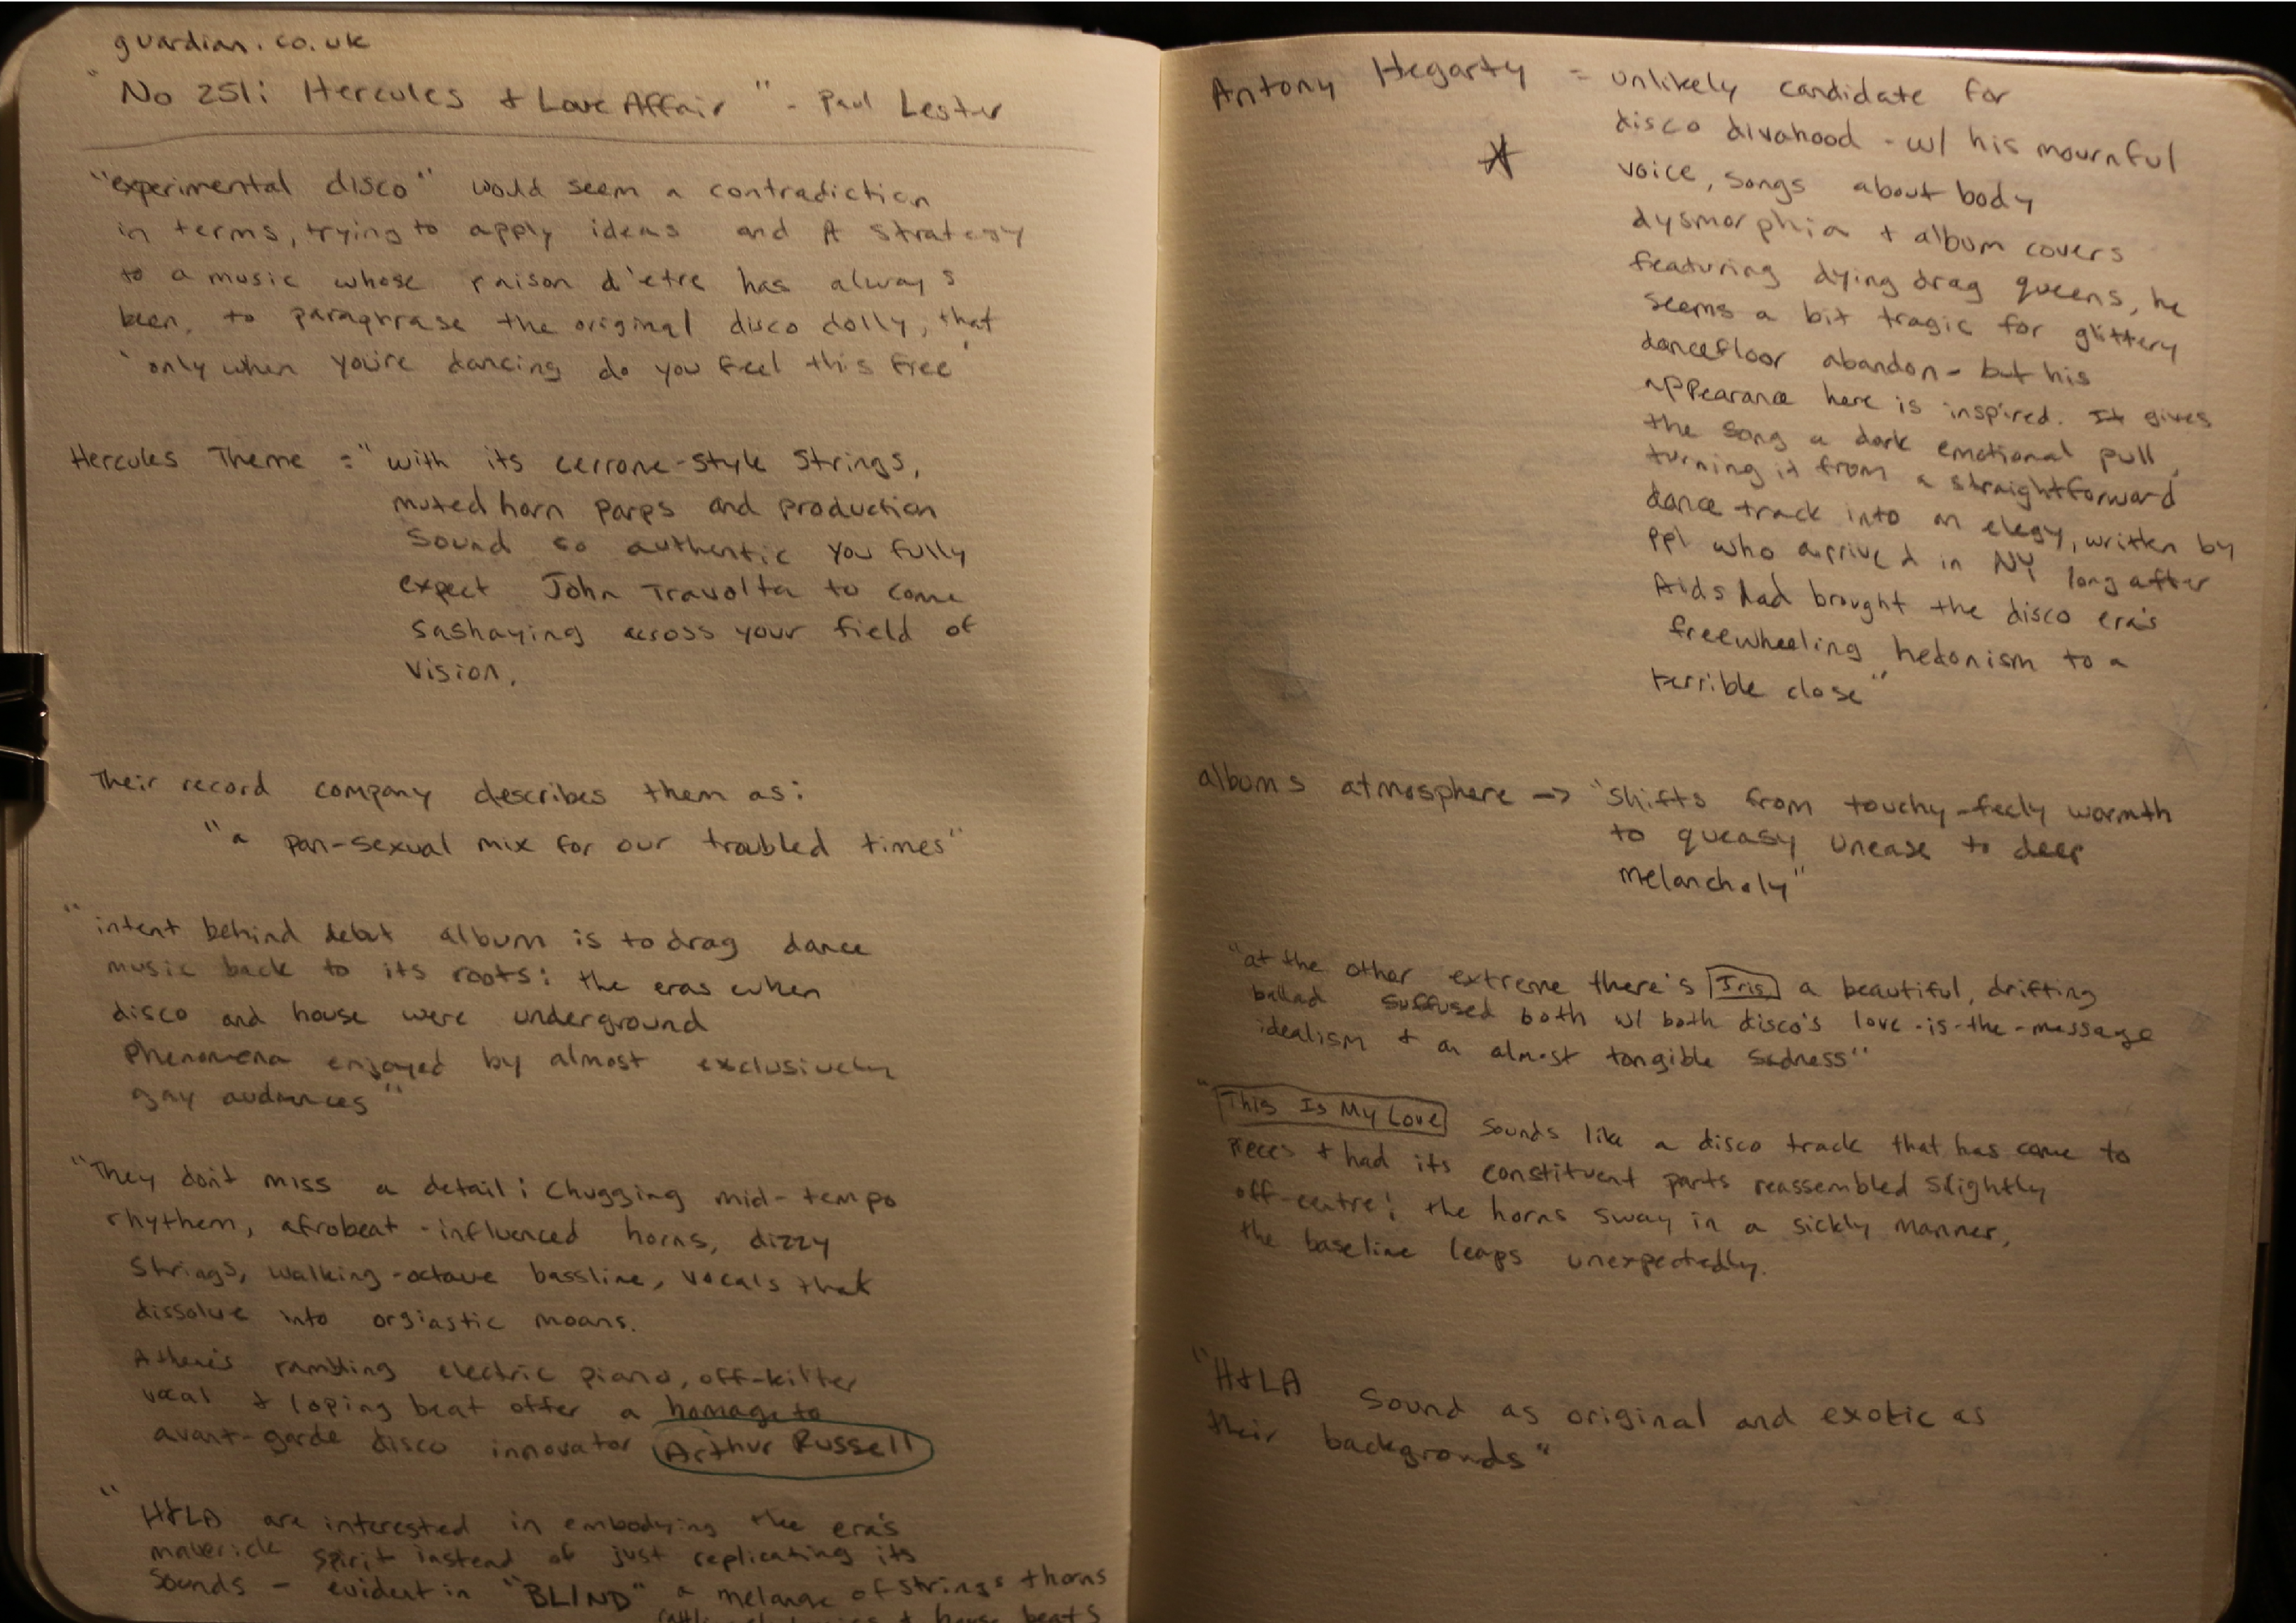 guardian.co.uk
"No 251: Hercules & Love Affair" - Paul Lester
"experimental disco" would seem a contradiction
in terms, trying to apply ideas and A strategy
to a music whose raison d'etre has always
been, to paraphrase the original disco dolly, that
'only when you're dancing do you feel this free'
Hercules Theme = "with its cerrone-style strings,
muted horn parps and production
sound so authentic you fully
expect John Travolta to come
sashaying across your field of
vision.
Their record company describes them as:
"a pan-sexual mix for our troubled times"
"intent behind debut album is to drag dance
music back to its roots: the eras when
disco and house were underground
phenomena enjoyed by almost exclusively
gay audiences"
"They don't miss a detail: Chugging mid-tempo
rhythem, afrobeat-influenced horns, dizzy
strings, walking-octave bassline, vocals that
dissolve into orgiastic moans.
Athene's rambling electric piano, off-kilter
vocal & loping beat offer a homage to
avant-garde disco innovator Arthur Russell
"H&LA are interested in embodying the era's
maverick spirit instead of just replicating its
sounds - evident in "BLIND" a melange of strings & horns
& house beats
Antony Hegarty = unlikely candidate for
disco divahood - w/ his mournful
voice, songs about body
dysmorphia & album covers
featuring dying drag queens, he
seems a bit tragic for glittery
dancefloor abandon - but his
appearance here is inspired. It gives
the song a dark emotional pull,
turning it from a straightforward
dance track into an elegy, written by
ppl who arrived in NY long after
Aids had brought the disco era's
freewheeling hedonism to a
terrible close"
albums atmosphere -> "shifts from touchy-feely warmth
to queasy unease to deep
melancholy"
"at the other extreme there's Iris a beautiful, drifting
ballad suffused both w/ both disco's love-is-the-message
idealism & an almost tangible sadness"
"This Is My Love sounds like a disco track that has come to
pieces & had its constituent parts reassembled slightly
off-centre: the horns sway in a sickly manner,
the baseline leaps unexpectedly.
"H&LA sound as original and exotic as
their backgrounds"